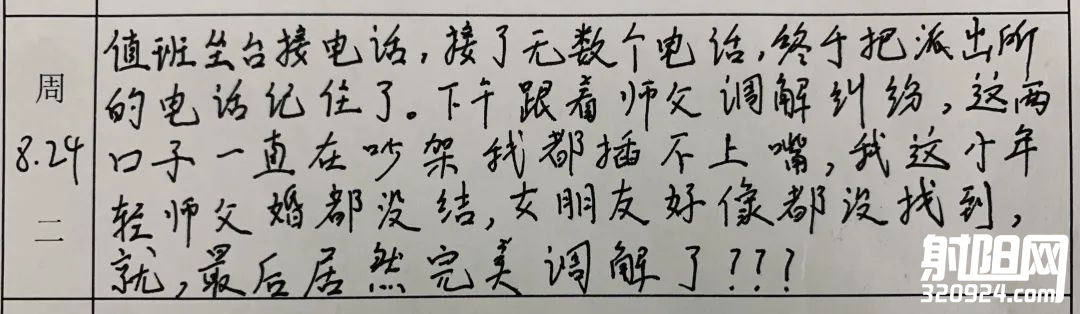 周
8.24
二
值班坐台接电话，接了无数个电话，终于把派出所
的电话纪住了。下午跟着师父调解纠纷，这两
口子一直在吵架我都插不上嘴，我这小年
轻师父婚都没结，女朋友好像都没找到，
就，最后居然完美调解了???
射阳网
320924.com